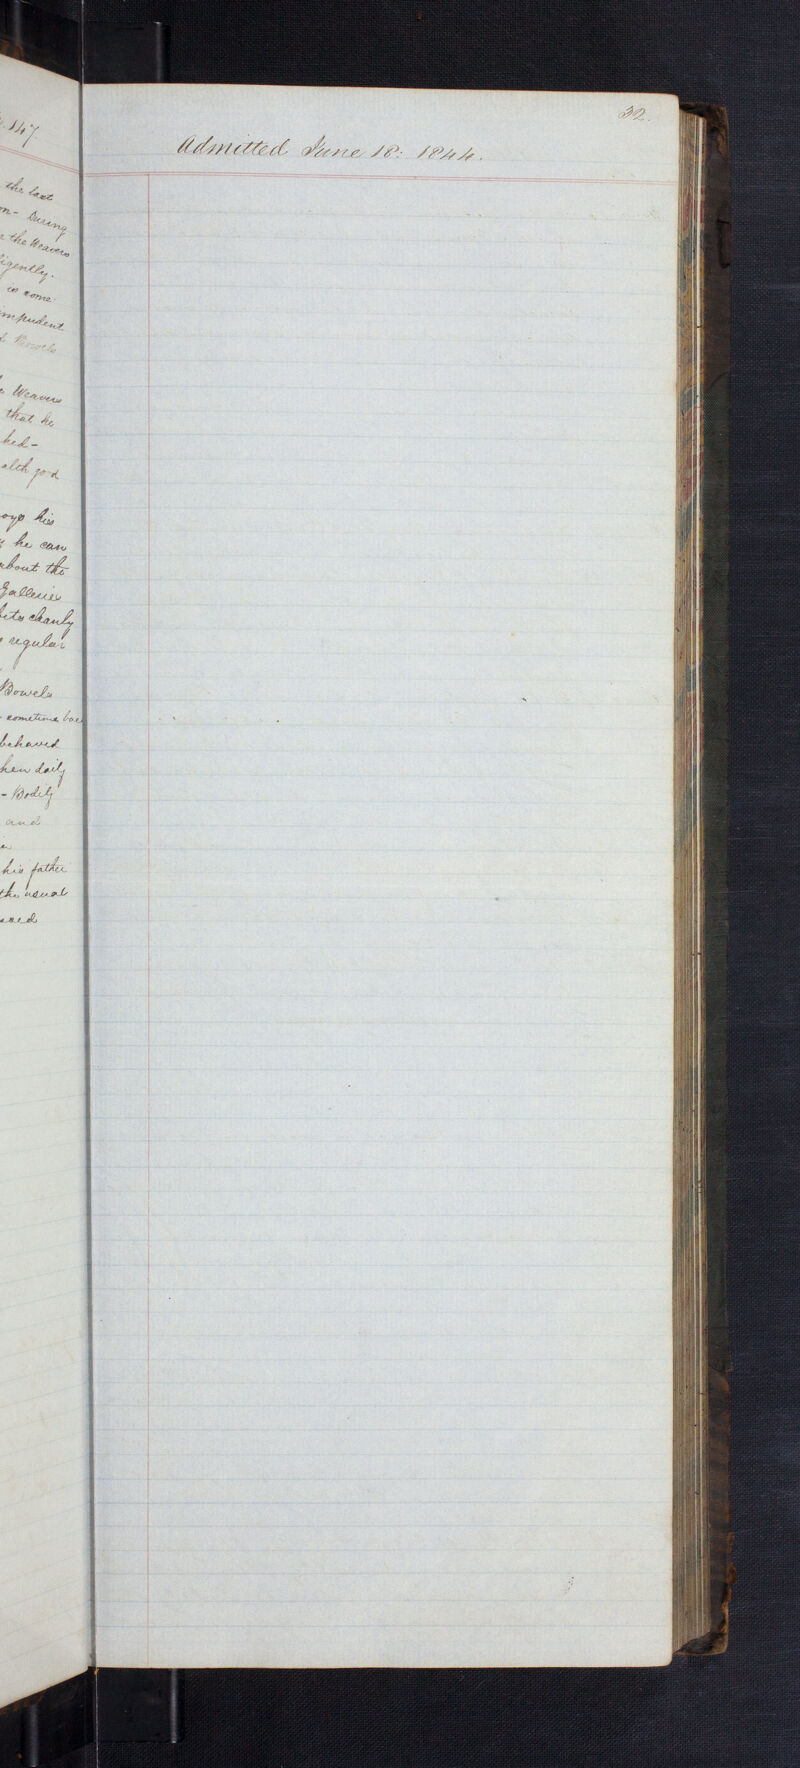 147.
the last
on - During
the Weavers
igently.
is some
impudent
Bowels
Weavers
that he
ked -
alth good
oys his
he can
about the
Galleries
its cleanly
regular
Bowels
sometimes bac
behaved
hen daily
- Bodily
and
his father
the usual
32.
Admitted June 18: 1844.